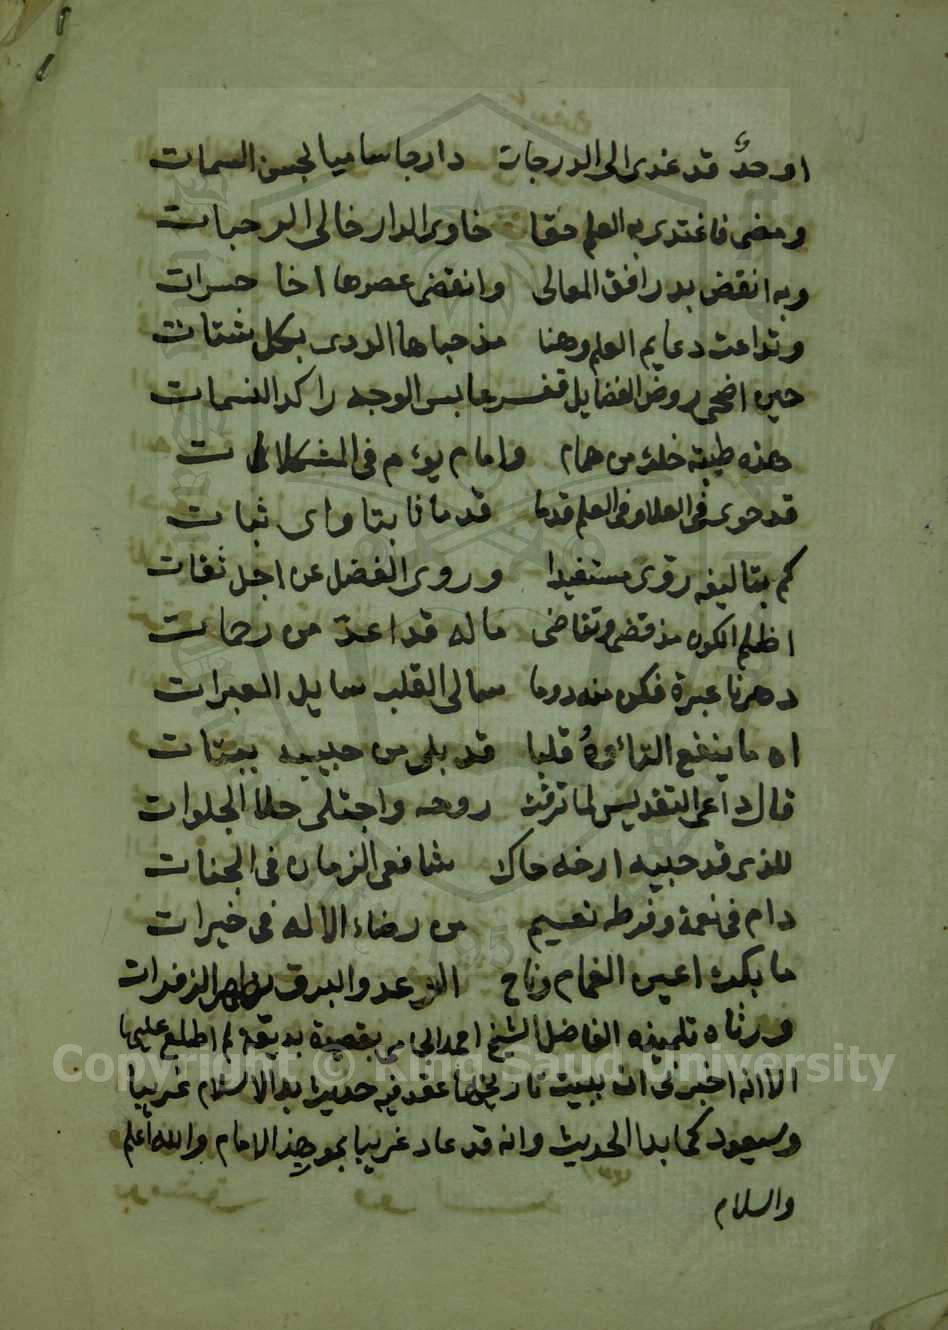 اوحدٌ قد غدى الى الدرجات دارجا ساميا لحسن السمات
ومضى فاغتدى به العلم حقا خاوى الدار خالى الرحبات
وبه انقض بدر افق المعالى وانقضى عصرها اخا حسرات
وتداعت دعايم العلم وهنا مذ حباها الردى بكل شتات
حين اضحى روض الفضايل قفر عابس الوجه راكد النسمات
هذه طيبة خلت من همام وامام يؤم فى المشكلات
قد حوى فى العلا وفى العلم قدما قدما ثابتا واى ثبات
كم بتاليفه روى مستفيدا وروى الفضل عن اجل ثقات
اظلم الكون مذ قضى وتقاضى ماله قد اعدّ من رحمات
دهرنا عبرة فكن منه دوما سالى القلب سايل العبرات
اه ما ينفع التاوهُ قلبا قد بلى من حبيبه ببتات
قال داعى التقديس لما ترقت روحه واجتلى حلا الجلوات
للذى قد حبيه ارخه حاك شافعى الزمان فى الجنات
دام فى نعمة وفرط نعيم من رضاء الاله فى خيرات
ما بكت اعين الغمام وناح الرعد والبرق الزفرات
ورثاه تلميذه الفاضل الشيخ احمد الجامى بقصيدة بديعة لم اطلع عليها
الا انه اخبرنى ان ببيت تاريخها عقد فيه حديث بدا الاسلام غريبا
وسيعود كما بدا الحديث وانه قد عاد غريبا بموت هذا الامام والله اعلم
والسلام
Copyright © King Saud University